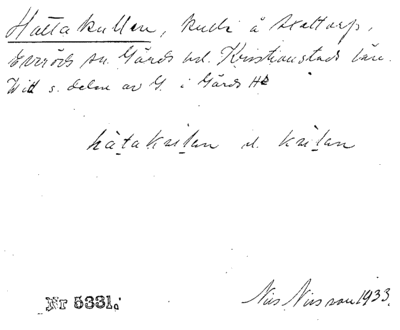 Hattakullen, kulle å Axeltorp,
Everöds sn. Gärds hd. Kristianstads län.
s. delen av G. i Gärds Hd
hätakrilan el. krilan
Nils Nilsson 1933.
Nr 5331.